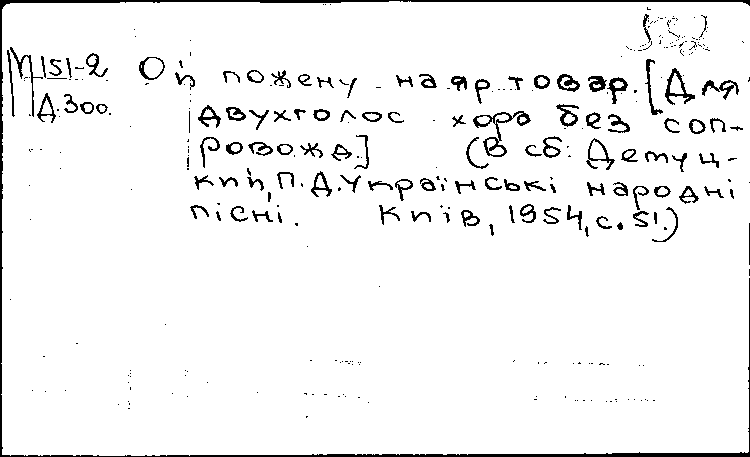 552
М151-2 Ой пожену на яр товар. [Для
Д.300. двухголос хора без соп-
ровожд.] (В сб: Демуц-
кий, П.Д. Українські народні
пісні. Київ, 1954, с. 51.)